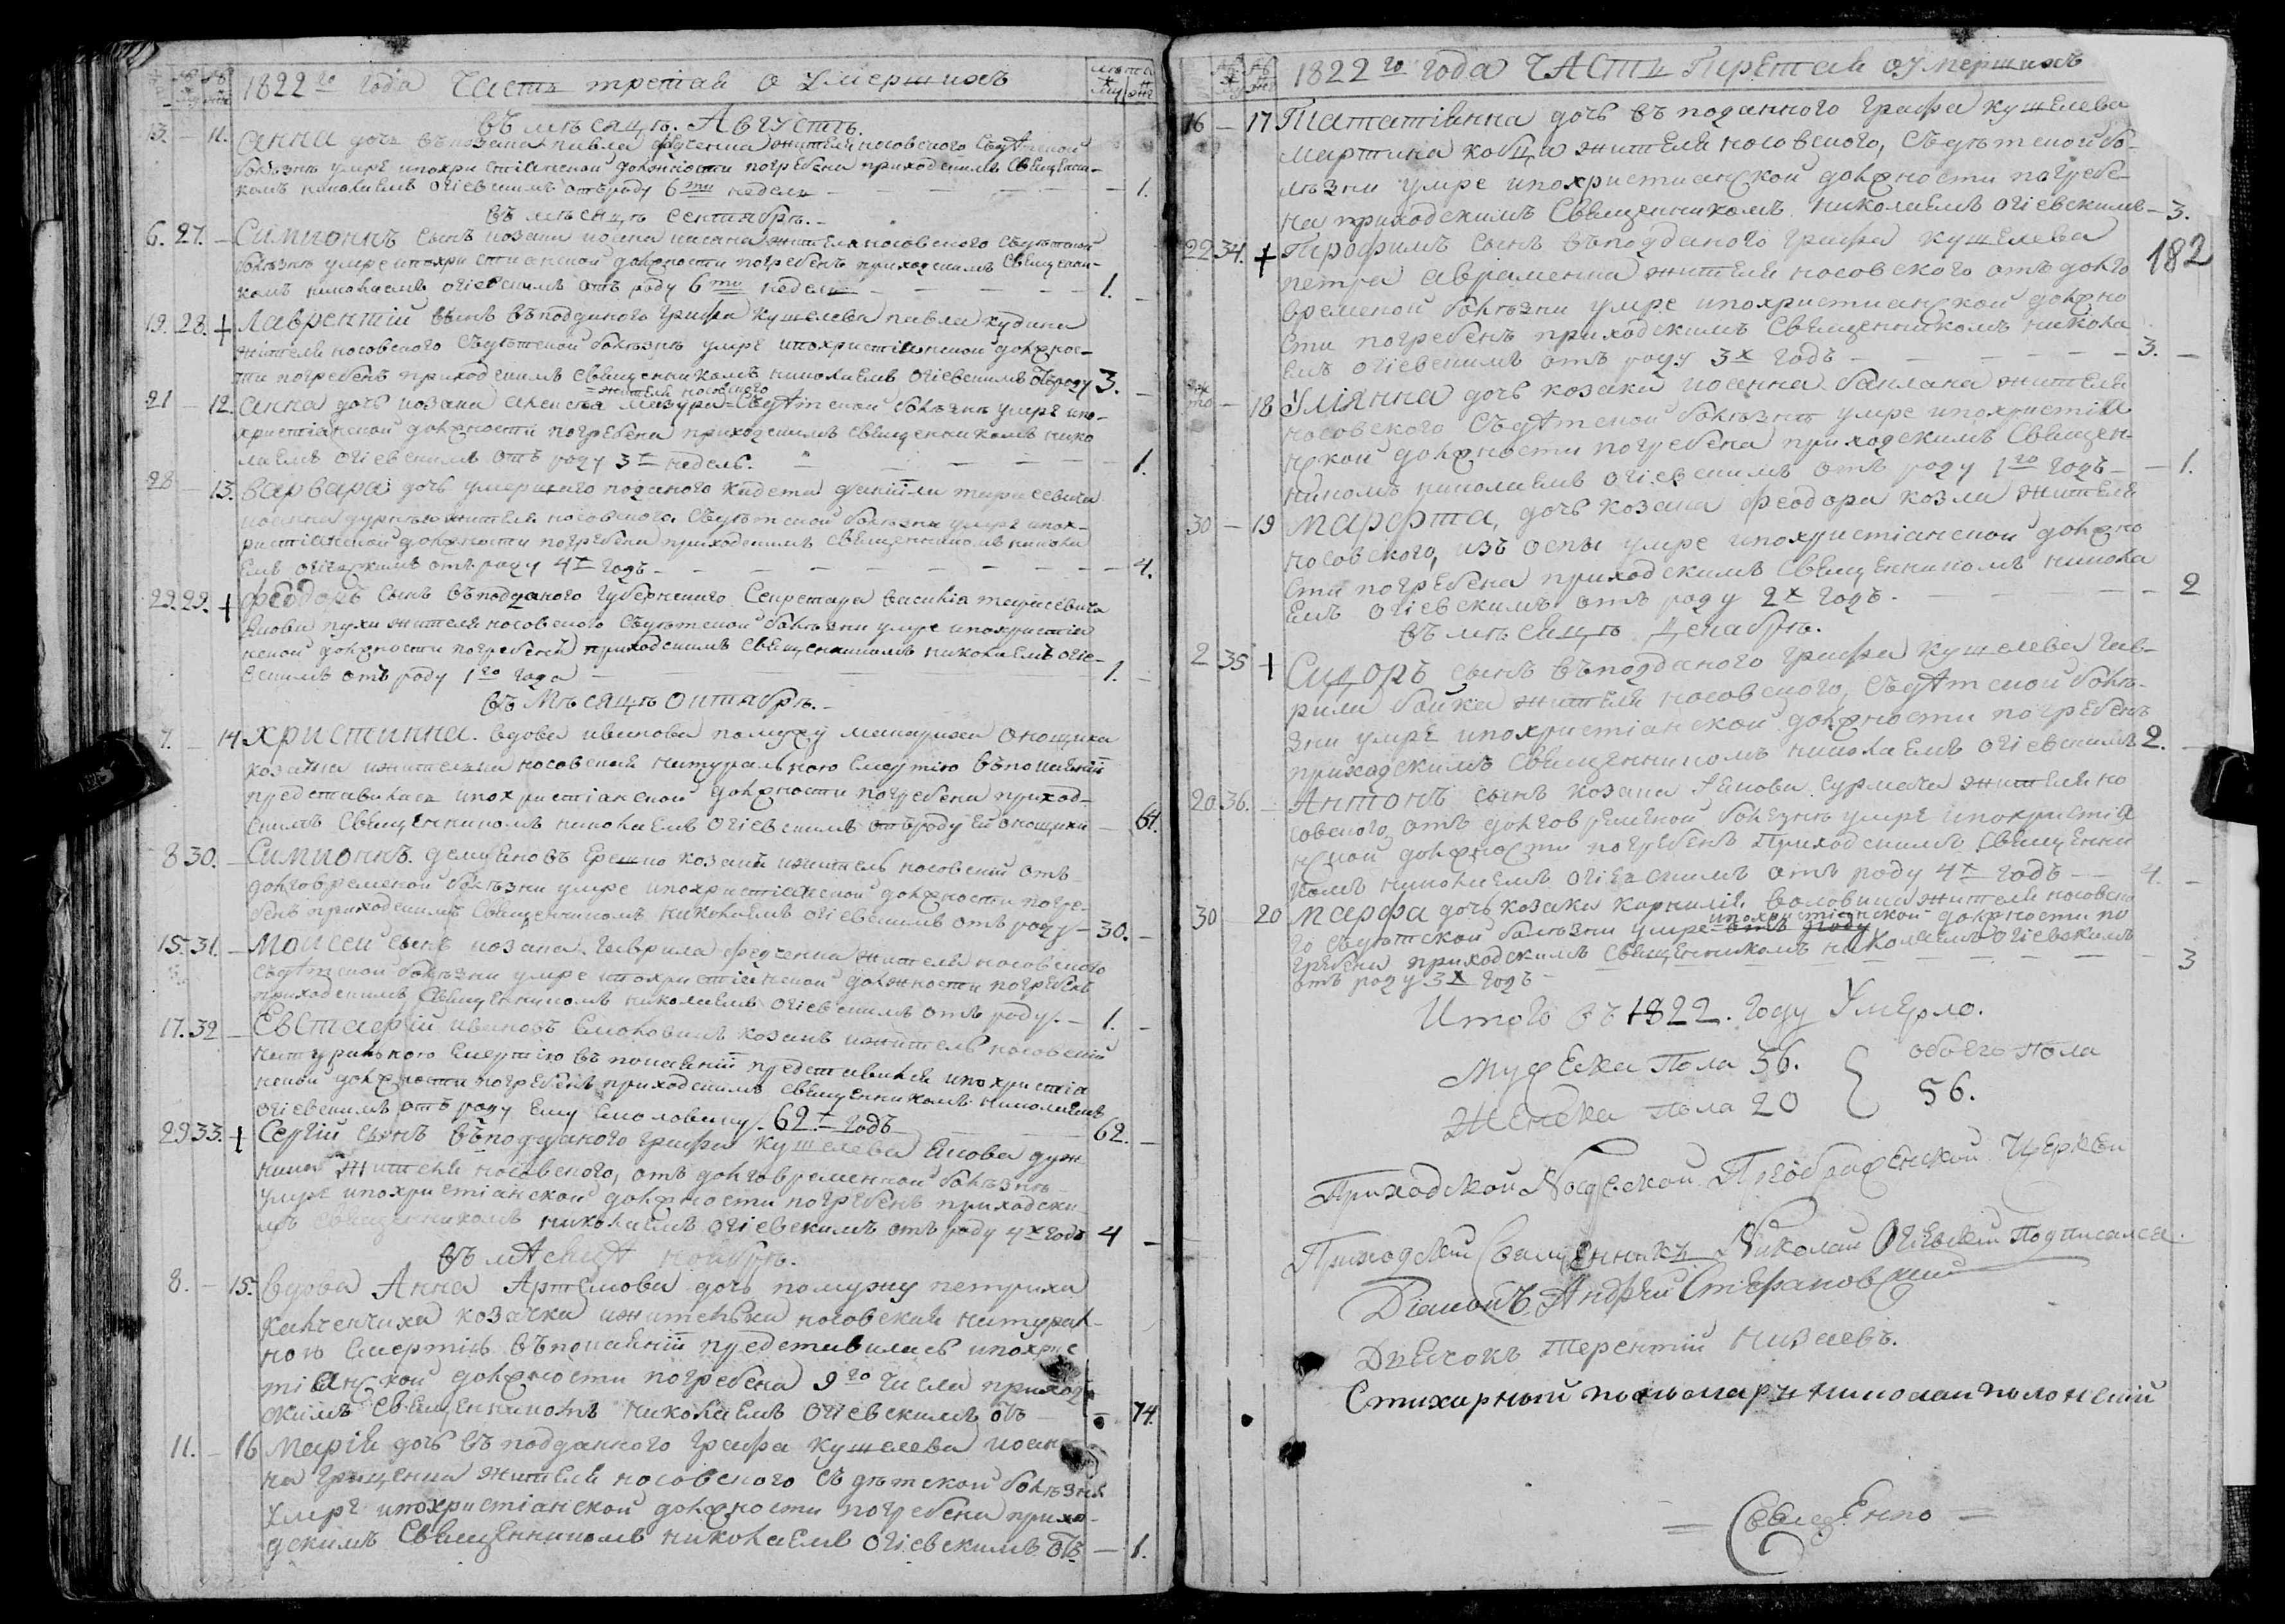 1822го года Часть третая о Умершихъ
въ месяцъ. Августъ.
13. — 11. Анна дочъ козака павла федченка жителя носовского Съдѣтской
болѣзнѣ умре ипохристіянской должности погребена приходскимъ священни-
комъ николаемъ огіевскимъ отъ роду 6ти недель — 1.
въ месяцъ сентябръ.
6. 27. — Симионнъ сынъ козака жителя носовского Съдѣтской
болѣзнѣ умре ипохристианской должности погребенъ приходскимъ священни-
комъ николаемъ огіевскимъ отъ роду 6ти недель — 1. —
19. 28. + Лаврентій сынъ въподданого графа кушелева павла кудина
жителя носовского Съдѣтской болѣзнѣ умре ипохристіянской должнос-
ти погребенъ приходскимъ священникомъ николаемъ огіевскимъ отъ роду 3. —
21 — 12. Анна дочъ козака алексея мазура жителя носовского Съдѣтской болѣзнѣ умре ипо-
христіанской должности погребена приходскимъ священникомъ нико
лаемъ огіевскимъ отъ роду 3х недель. — 1.
28 — 13. Варвара дочъ умершего поданого кадета даніила тарасевича
жителя носовского, Съдѣтской болѣзни умре ипох-
ристіанской должности погребена приходскимъ священникомъ никола
емъ огіевскимъ отъ роду 4х годъ — 4.
29. 29. + Феодоръ сынъ въподданого губернского Секретара василія тарасевича
якова пухи жителя носовского Съдѣтской болѣзни умре ипохристіа
нской должности погребенъ приходскимъ священникомъ николаемъ огіе-
вскимъ отъ роду 1го года — 1. —
въ месяцъ октябръ.
7. — 14 Христинна. вдова иванова помужу макариха онощиха
козачка ижителька носовская натуральною смертію въпокаяніи
представилась ипохристіанской должности погребена приход-
скимъ священникомъ николаемъ огіевскимъ отъ роду ей онощихи — 61.
8 30. — Симионнъ. демьяновъ ерешко козакъ ижитель носовскій отъ
долговременой болѣзни умре ипохристіанской должности погре-
бенъ приходскимъ священникомъ николаемъ огіевскимъ отъ роду — 30. —
15. 31. — Моисей сынъ козака гаврила федченка жителя носовского
Съдѣтской болѣзни умре ипохристіянской должности погребенъ
приходскимъ священникомъ николаемъ огіевскимъ отъ роду. — 1. —
17. 32 — Евстафій ивановъ смоловикъ козакъ ижитель носовскій
натуральною смертію въ покаяніи представился ипохристіа
нской должности погребенъ приходскимъ священникомъ николаемъ
огіевскимъ отъ роду ему смоловику. 62.х годъ 62. —
29 33. + Сергій сынъ въподданого графа кушелева якова
жителя носовского, отъ долговременной болѣзнѣ
умре ипохристіанской должности погребенъ приходски
мъ священникомъ николаемъ огіевскимъ отъ роду 4х годъ 4 —
въ месяцѣ ноябръ.
8. — 15. вдова Анна Артемова дочъ помужу петриха
калченчиха козачка ижителька носовская натурал-
ною смертію въпокаяніи представилась ипохрис
тіанской должности погребена 9го числа приход
скимъ священникомъ николаемъ огіевскимъ отъ — 74.
11. — 16 Марія дочъ въподданого графа кушелева иоан-
на грищенка жителя носовского Съдѣтской болѣзня
умре ипохристіанской должности погребена прихо-
дскимъ священникомъ николаемъ огіевскимъ отъ — 1.
1822го года Часть Третая оумершихъ
16 — 17 Тататіанна дочъ въподанного графа кушелева
мартина кобца жителя носовского, Съдѣтской бо-
лѣзни умре ипохристианской должности погребе-
на приходскимъ священникомъ николаемъ огіевскимъ — 3.
182
22 34. + Трофимъ сынъ въподданого графа кушелева
петра авраменка жителя носовского отъ долго
временой болѣзни умре ипохристианской должно
сти погребенъ приходскимъ священникомъ никола
емъ огіевскимъ отъ роду 3х годъ — 3. —
18 Уліянна дочъ козака иоанна баклана жителя
носовского Съдѣтской болѣзнѣ умре ипохристіа
нской должности погребена приходскимъ священ-
никомъ николаемъ огіевскимъ отъ роду 1го годъ — 1.
30 — 19 Марфта, дочъ козака феодора козла жителя
носовского, изъ оспы умре ипохристіанской должно
сти погребена приходскимъ священникомъ никола
емъ огіевскимъ отъ роду 2х годъ. — 2
въ месяцъ Декабръ.
2 35 + Сидоръ сынъ въподданого графа кушелева гав-
рила бойка жителя носовского, Съдѣтской болѣ-
зни умре ипохристіанской должности погребенъ
приходскимъ священникомъ николаемъ огіевскимъ 2. —
20 36. — Антонъ сынъ козака якова сурмача жителя но
совского, отъ долговременой болѣзнѣ умре ипохристіа
нской должности погребенъ Приходскимъ священни
комъ николаемъ огіевскимъ отъ роду 4х годъ — 4. —
30 — 20 Марфа дочъ козака корнилія воловика жителя носовско
го Съдѣтской болѣзни умре ипохристіанской должности по
гребена приходскимъ священникомъ николаемъ огіевскимъ
отъ роду 3х годъ — 3
Итого въ 1822. году Умерло.
Мужеска Пола 36. обоего пола
Женска пола 20 56.
Приходской Носовской Преображенской Церкви
Приходскій Священникъ Николай Огіевскій Подписался.
Діаконъ Андрей Стефановскій
Дьячокъ Терентій Низаевъ.
Стихарный пономаръ николай полонскій
Свидетено